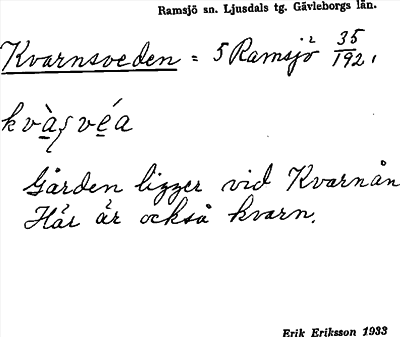 Ramsjö sn. Ljusdals tg. Gävleborgs län.
Kvarnsveden = 5 Ramsjö² 35/192,
Gården ligger vid Kvarnån
Här är också kvarn.
Erik Eriksson 1933